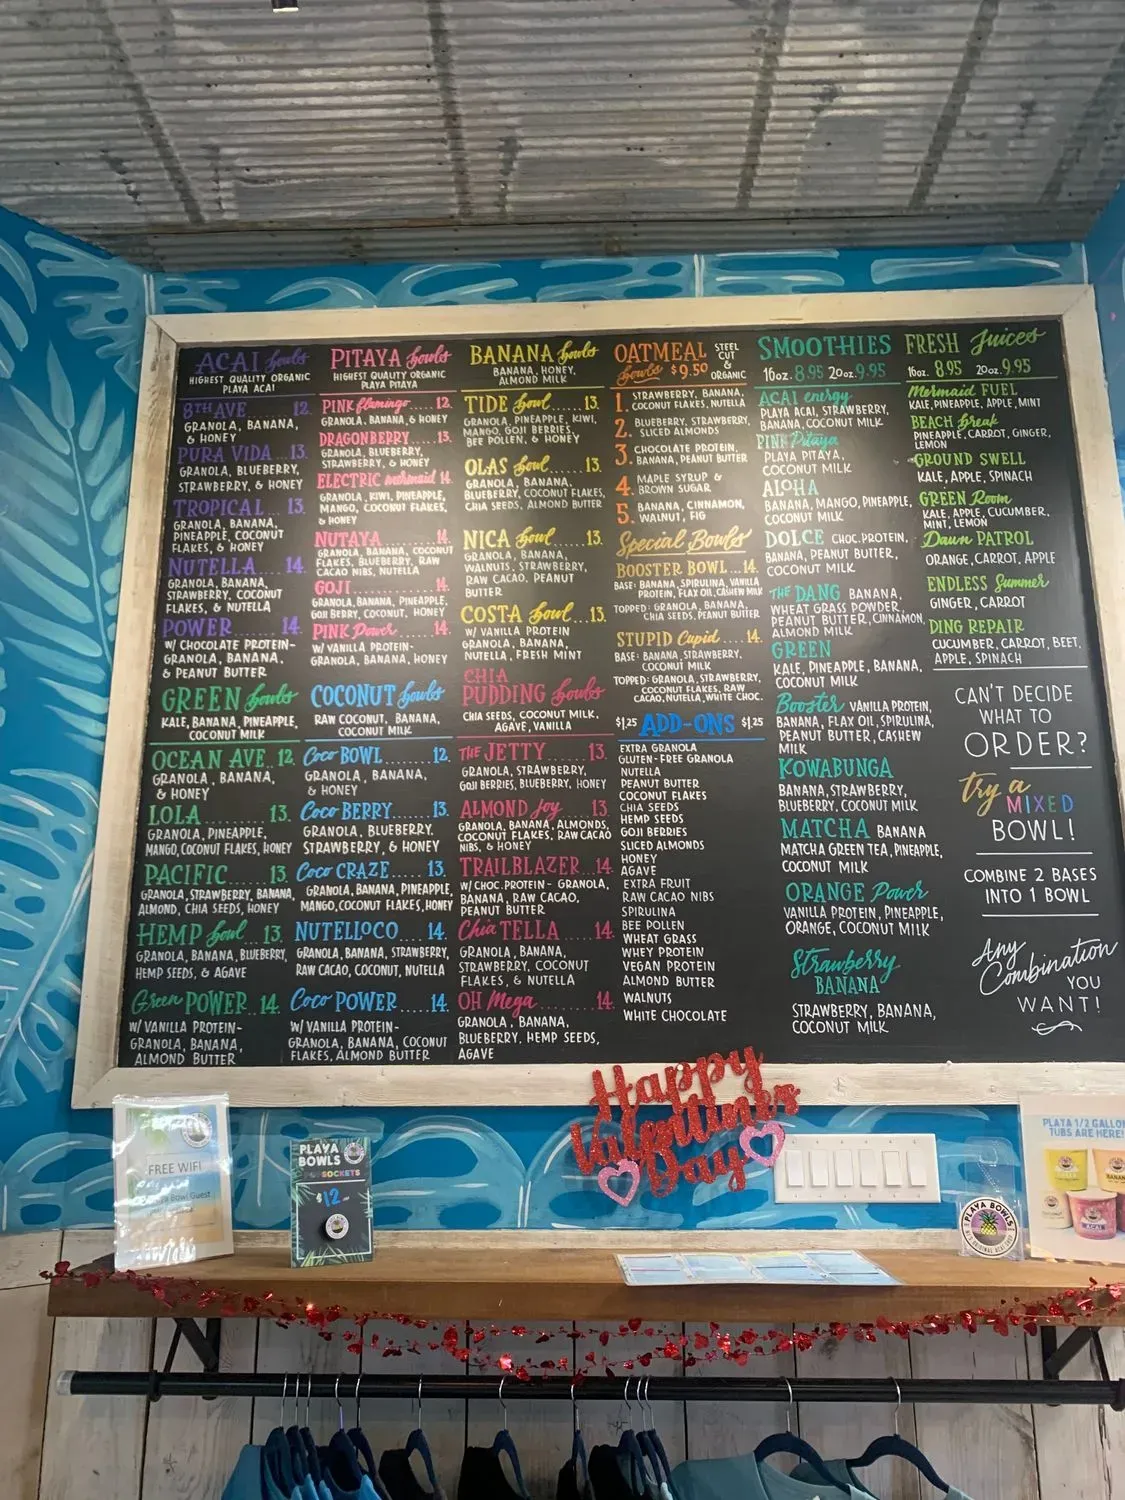 ACAI bowls
HIGHEST QUALITY ORGANIC
PLAYA ACAI
8TH AVE 12.
GRANOLA, BANANA,
& HONEY
PURA VIDA 13.
GRANOLA, BLUEBERRY,
STRAWBERRY, & HONEY
TROPICAL 13.
GRANOLA, BANANA,
PINEAPPLE, COCONUT
FLAKES, & HONEY
NUTELLA 14.
GRANOLA, BANANA,
STRAWBERRY, COCONUT
FLAKES, & NUTELLA
POWER 14.
W/ CHOCOLATE PROTEIN-
GRANOLA, BANANA,
& PEANUT BUTTER
GREEN bowls
KALE, BANANA, PINEAPPLE,
COCONUT MILK
OCEAN AVE 12.
GRANOLA, BANANA,
& HONEY
LOLA......13.
GRANOLA, PINEAPPLE,
MANGO, COCONUT FLAKES, HONEY
PACIFIC.....13.
GRANOLA, STRAWBERRY, BANANA,
ALMOND, CHIA SEEDS, HONEY
HEMP bowl 13.
GRANOLA, BANANA, BLUEBERRY,
HEMP SEEDS, & AGAVE
Green POWER..14.
W/ VANILLA PROTEIN-
GRANOLA, BANANA,
ALMOND BUTTER
PITAYA bowls
HIGHEST QUALITY ORGANIC
PLAYA PITAYA
PINK flamingo.....12.
GRANOLA, BANANA, & HONEY
DRAGONBERRY....13.
GRANOLA, BLUEBERRY,
STRAWBERRY, & HONEY
ELECTRIC mermaid 14.
GRANOLA, KIWI, PINEAPPLE,
MANGO, COCONUT FLAKES,
& HONEY
NUTAYA......14.
GRANOLA, BANANA, COCONUT
FLAKES, BLUEBERRY, RAW
CACAO NIBS, NUTELLA
GOJI..........14.
GRANOLA, BANANA, PINEAPPLE,
GOJI BERRY, COCONUT, HONEY
PINK Power.....14.
W/ VANILLA PROTEIN-
GRANOLA, BANANA, HONEY
COCONUT bowls
RAW COCONUT, BANANA,
COCONUT MILK
Coco BOWL.......12.
GRANOLA, BANANA,
& HONEY
Coco BERRY.....13.
GRANOLA, BLUEBERRY,
STRAWBERRY, & HONEY
Coco CRAZE...13.
GRANOLA, BANANA, PINEAPPLE,
MANGO, COCONUT FLAKES, HONEY
NUTELLOCO....14.
GRANOLA, BANANA, STRAWBERRY,
RAW CACAO, COCONUT, NUTELLA
Coco POWER....14.
W/ VANILLA PROTEIN-
GRANOLA, BANANA, COCONUT
FLAKES, ALMOND BUTTER
BANANA bowls
BANANA, HONEY,
ALMOND MILK
TIDE bowl.....13.
GRANOLA, PINEAPPLE, KIWI,
MANGO, GOJI BERRIES,
BEE POLLEN, & HONEY
OLAS bowl.....13.
GRANOLA, BANANA,
BLUEBERRY, COCONUT FLAKES,
CHIA SEEDS, ALMOND BUTTER
NICA bowl.....13.
GRANOLA, BANANA,
WALNUTS, STRAWBERRY,
RAW CACAO, PEANUT
BUTTER
COSTA bowl....13.
W/ VANILLA PROTEIN
GRANOLA, BANANA,
NUTELLA, FRESH MINT
CHIA
PUDDING bowls
CHIA SEEDS, COCONUT MILK,
AGAVE, VANILLA
THE JETTY.......13.
GRANOLA, STRAWBERRY,
GOJI BERRIES, BLUEBERRY, HONEY
ALMOND Joy....13.
GRANOLA, BANANA, ALMONDS,
COCONUT FLAKES, RAW CACAO
NIBS, & HONEY
TRAILBLAZER..14.
W/ CHOC. PROTEIN- GRANOLA,
BANANA, RAW CACAO,
PEANUT BUTTER
Chia TELLA.....14.
GRANOLA, BANANA,
STRAWBERRY, COCONUT
FLAKES, & NUTELLA
OH Mega........14.
GRANOLA, BANANA,
BLUEBERRY, HEMP SEEDS,
AGAVE
OATMEAL bowls $9.50
STEEL
CUT
&
ORGANIC
1. STRAWBERRY, BANANA,
COCONUT FLAKES, NUTELLA
2. BLUEBERRY, STRAWBERRY,
SLICED ALMONDS
3. CHOCOLATE PROTEIN,
BANANA, PEANUT BUTTER
4. MAPLE SYRUP &
BROWN SUGAR
5. BANANA, CINNAMON,
WALNUT, FIG
Special Bowls
BOOSTER BOWL...14.
BASE: BANANA, SPIRULINA, VANILLA
PROTEIN, FLAX OIL, CASHEW MILK
TOPPED: GRANOLA, BANANA,
CHIA SEEDS, PEANUT BUTTER
STUPID Cupid....14.
BASE: BANANA, STRAWBERRY,
COCONUT MILK
TOPPED: GRANOLA, STRAWBERRY,
COCONUT FLAKES, RAW
CACAO, NUTELLA, WHITE CHOC.
$1.25 ADD-ONS $1.25
EXTRA GRANOLA
GLUTEN-FREE GRANOLA
NUTELLA
PEANUT BUTTER
COCONUT FLAKES
CHIA SEEDS
HEMP SEEDS
GOJI BERRIES
SLICED ALMONDS
HONEY
AGAVE
EXTRA FRUIT
RAW CACAO NIBS
SPIRULINA
BEE POLLEN
WHEAT GRASS
WHEY PROTEIN
VEGAN PROTEIN
ALMOND BUTTER
WALNUTS
WHITE CHOCOLATE
SMOOTHIES
16oz. 8.95 20oz. 9.95
ACAI energy
PLAYA ACAI, STRAWBERRY,
BANANA, COCONUT MILK
PINK Pitaya
PLAYA PITAYA,
COCONUT MILK
ALOHA
BANANA, MANGO, PINEAPPLE,
COCONUT MILK
DOLCE CHOC. PROTEIN,
BANANA, PEANUT BUTTER,
COCONUT MILK
THE DANG BANANA,
WHEAT GRASS POWDER,
PEANUT BUTTER, CINNAMON,
ALMOND MILK
GREEN
KALE, PINEAPPLE, BANANA,
COCONUT MILK
Booster VANILLA PROTEIN,
BANANA, FLAX OIL, SPIRULINA,
PEANUT BUTTER, CASHEW
MILK
KOWABUNGA
BANANA, STRAWBERRY,
BLUEBERRY, COCONUT MILK
MATCHA BANANA
MATCHA GREEN TEA, PINEAPPLE,
COCONUT MILK
ORANGE Power
VANILLA PROTEIN, PINEAPPLE,
ORANGE, COCONUT MILK
Strawberry
BANANA
STRAWBERRY, BANANA,
COCONUT MILK
FRESH Juices
16oz. 8.95 20oz. 9.95
Mermaid FUEL
KALE, PINEAPPLE, APPLE, MINT
BEACH break
PINEAPPLE, CARROT, GINGER,
LEMON
GROUND SWELL
KALE, APPLE, SPINACH
GREEN Room
KALE, APPLE, CUCUMBER,
MINT, LEMON
Dawn PATROL
ORANGE, CARROT, APPLE
ENDLESS Summer
GINGER, CARROT
DING REPAIR
CUCUMBER, CARROT, BEET,
APPLE, SPINACH
CAN'T DECIDE
WHAT TO
ORDER?
try a
MIXED
BOWL!
COMBINE 2 BASES
INTO 1 BOWL
Any
Combination
YOU
WANT!
Happy
Valentine's
Day
FREE WIFI
Bowl Guest
PLAYA
BOWLS
POPSOCKETS
$12
PLAYA BOWLS
PLAYA 1/2 GALLON
TUBS ARE HERE!
BANAN
ACAI